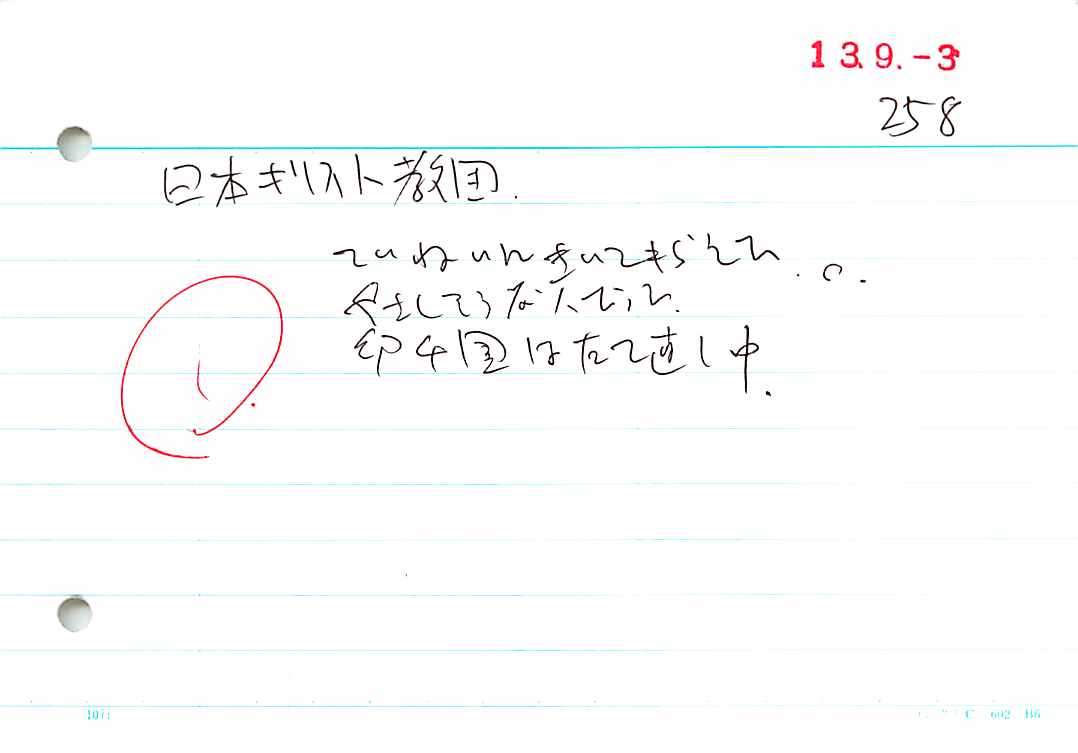 13.9.-3
258
日本キリスト教団.
ていねいにきいてもらえた. ○.
やさしそうな人でした.
印 4 国は立て直し中.
1071
C 602 B6